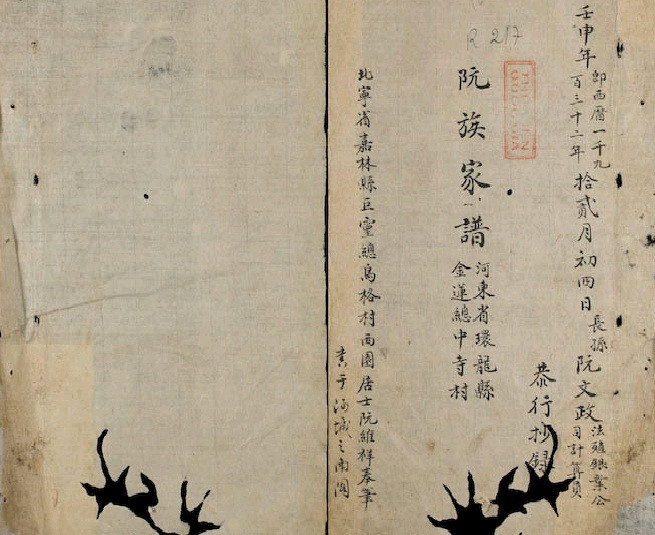 壬申年卽西曆一千九百三十二年拾貳月初四日長孫阮文政法殖銀業公司計算員
恭行抄錄
R 217
阮族家譜
河東省環龍縣
金蓮總中寺村
北寧省嘉林縣巨靈總烏格村西園居士阮維祥奉筆
書于河城之南閣